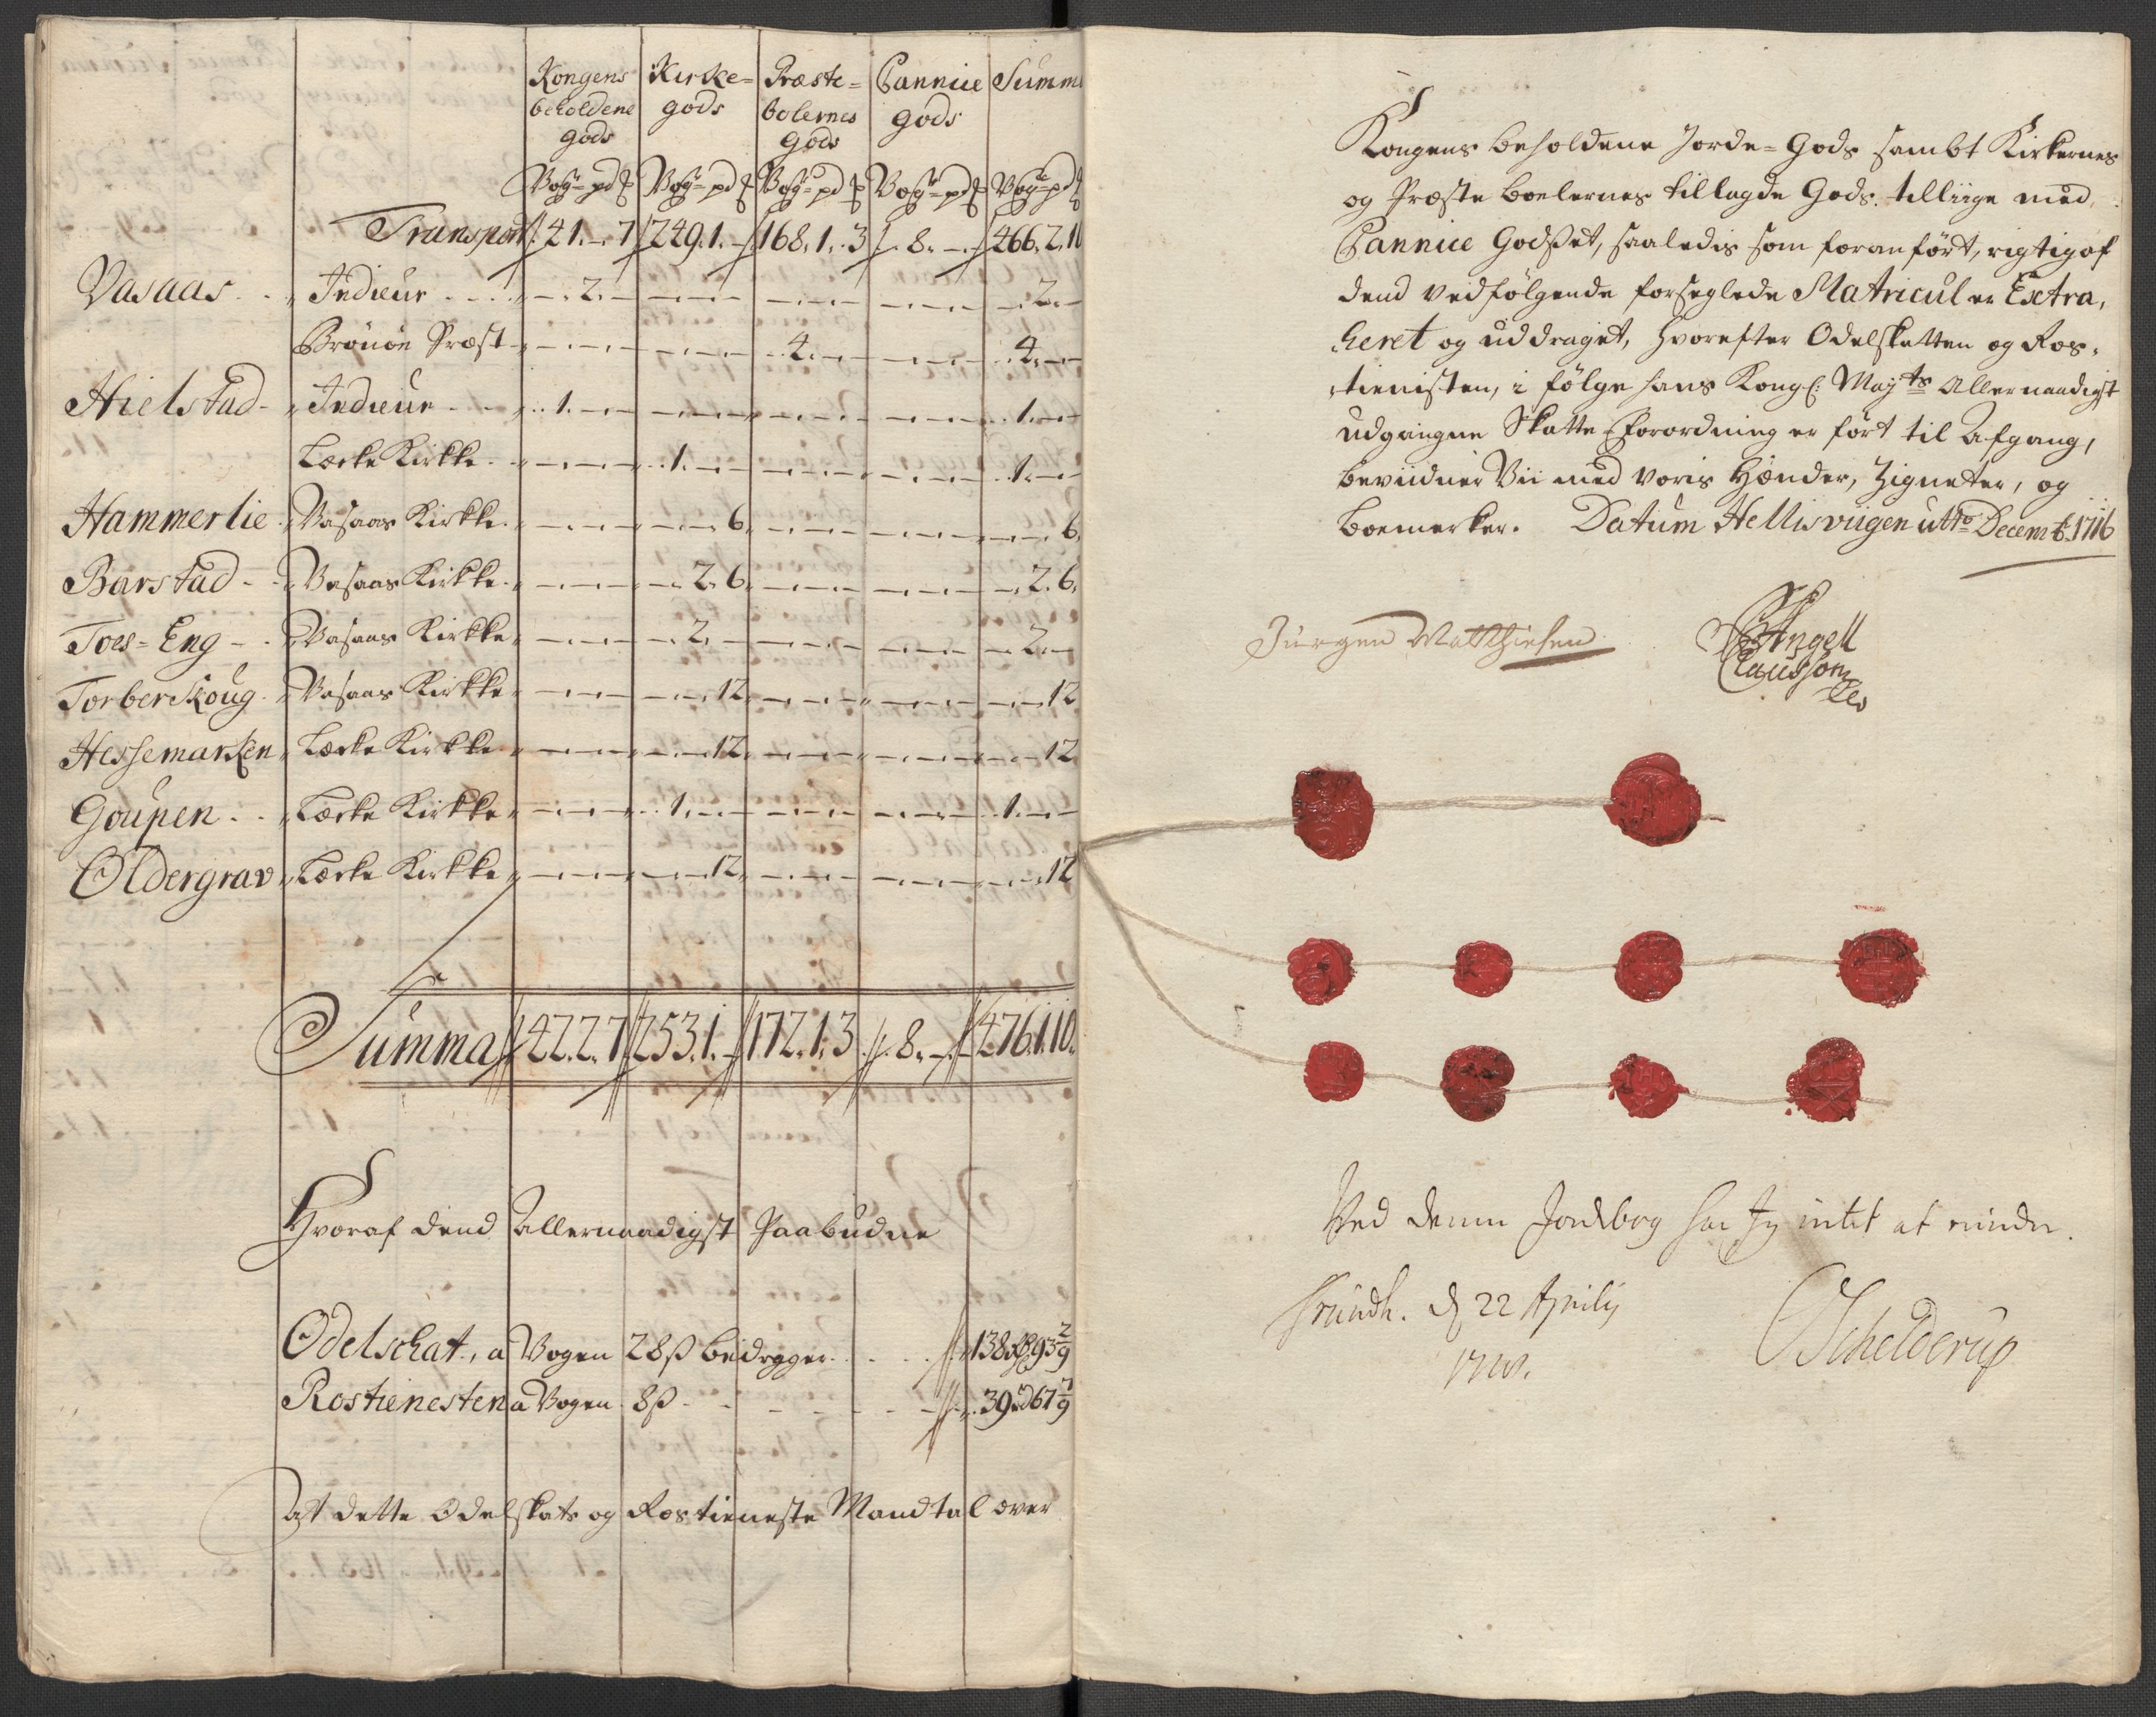 Kongens beholdene gods | Kirke= gods | Præste= bolernes Gods | Cannice gods | Summ
Vog= pd | Vog= pd | Vog= pd | Vog= pd | Vog= pd
Transport | 41. - 7 | 249. 1. - | 168. 1. 3 | 8. - - | 466. 2. 10
Vasaas - Indieur - 2. - 2. -
Brönöe Præst - 4. - 4. -
Hielstad - Indieur - 1. - 1. -
Loeke Kirkke - 1. - 1. -
Hammerlie - Vasaas Kirkke - 6. - 6.
Barstad - Vasaas Kirkke - 2. 6. - 2. 6.
Toes=Eng - Vasaas Kirkke - 2. - 2. -
Torberskoug - Vasaas Kirkke - 12. - 12
Hessemarken - Loeke Kirkke - 12. - 12
Goupen - Loeke Kirkke - 1. - 1. -
Oldergrav - Loeke Kirkke - 12. - 12
Summa | 42. 2. 7 | 253. 1. - | 172. 1. 3 | 8. - - | 476. 1. 10.
Hvoraf dend Allernaadigst Paabudne
Odelschat, a Vogen 28 ß bedrager - 138 rd 93 2/9
Rostienesten a Vogen 8 ß - 39 rd 67 7/9
At dette Odelskats og Rostieneste Mandtal over
Kongens beholdene Jorde=Gods sambt Kirkernes
og Præste boelernes tillagde Gods. tilliige med
Cannice Godset, saaledis som foranført, rigtig af
dend vedfølgende forseglede Matricul er Extra,
heret og uddraget, hvorefter Odelskatten og Ros,
tienisten, i følge hans Kongl: Mayts Allernaadigst
udgangne Skatte Forordning er ført til Afgang,
beviidner Vii med voris Hænder, Zigneter, og
boemerker. Datum Hellisviigen utto Decemb: 1716
Jürgen Matthiesen
Angell
Claussøn
Ved denne Jordebog har Jeg intet at erindre.
Trundh. d 22 Aprilij
Schelderup